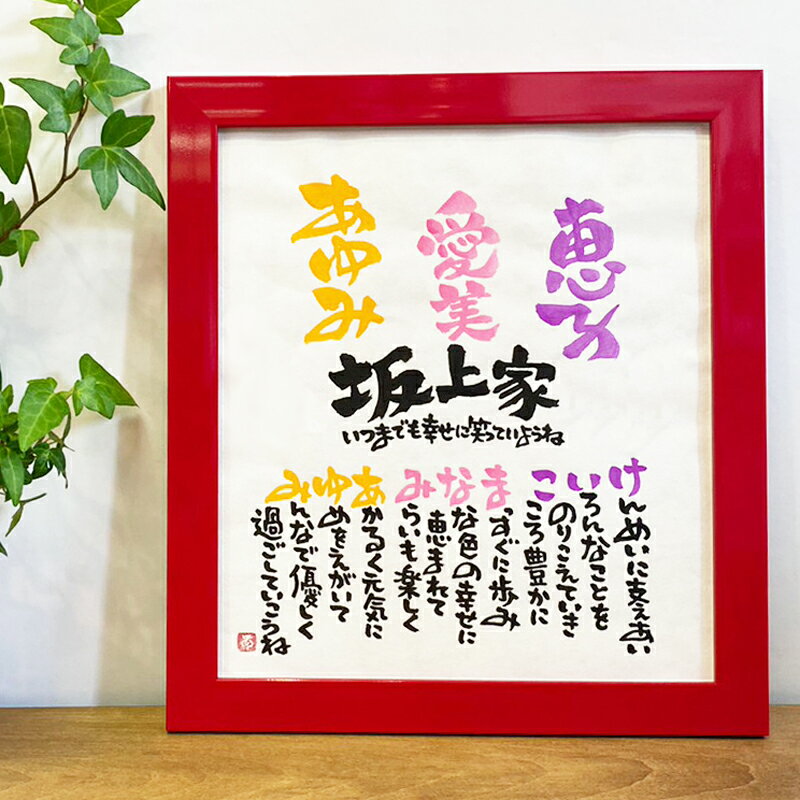 恵子
愛美
あゆみ
坂上家
いつまでも幸せに笑っていようね
けんめいに支えあい
いろんなことを
のりこえていき
こころ豊かに
まっすぐに歩み
なな色の幸せに
恵まれて
みらいも楽しく
あかるく元気に
ゆめをえがいて
みんなで優しく
過ごしていこうね